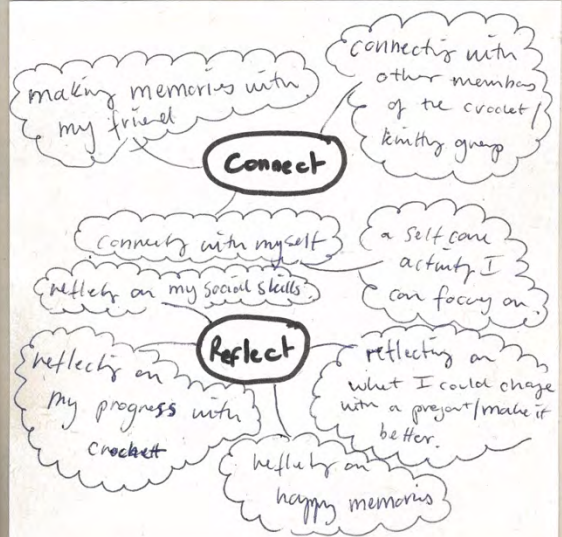 making memories with
my friend
connecting with
other members
of the crochet/
knitting group
Connect
connecting with myself
a self care
activity I
can focus on.
reflecting on my social skills.
Reflect
reflecting on
my progress with
crochett
reflecting on
what I could change
with a project/make it
better.
reflecting on
happy memories